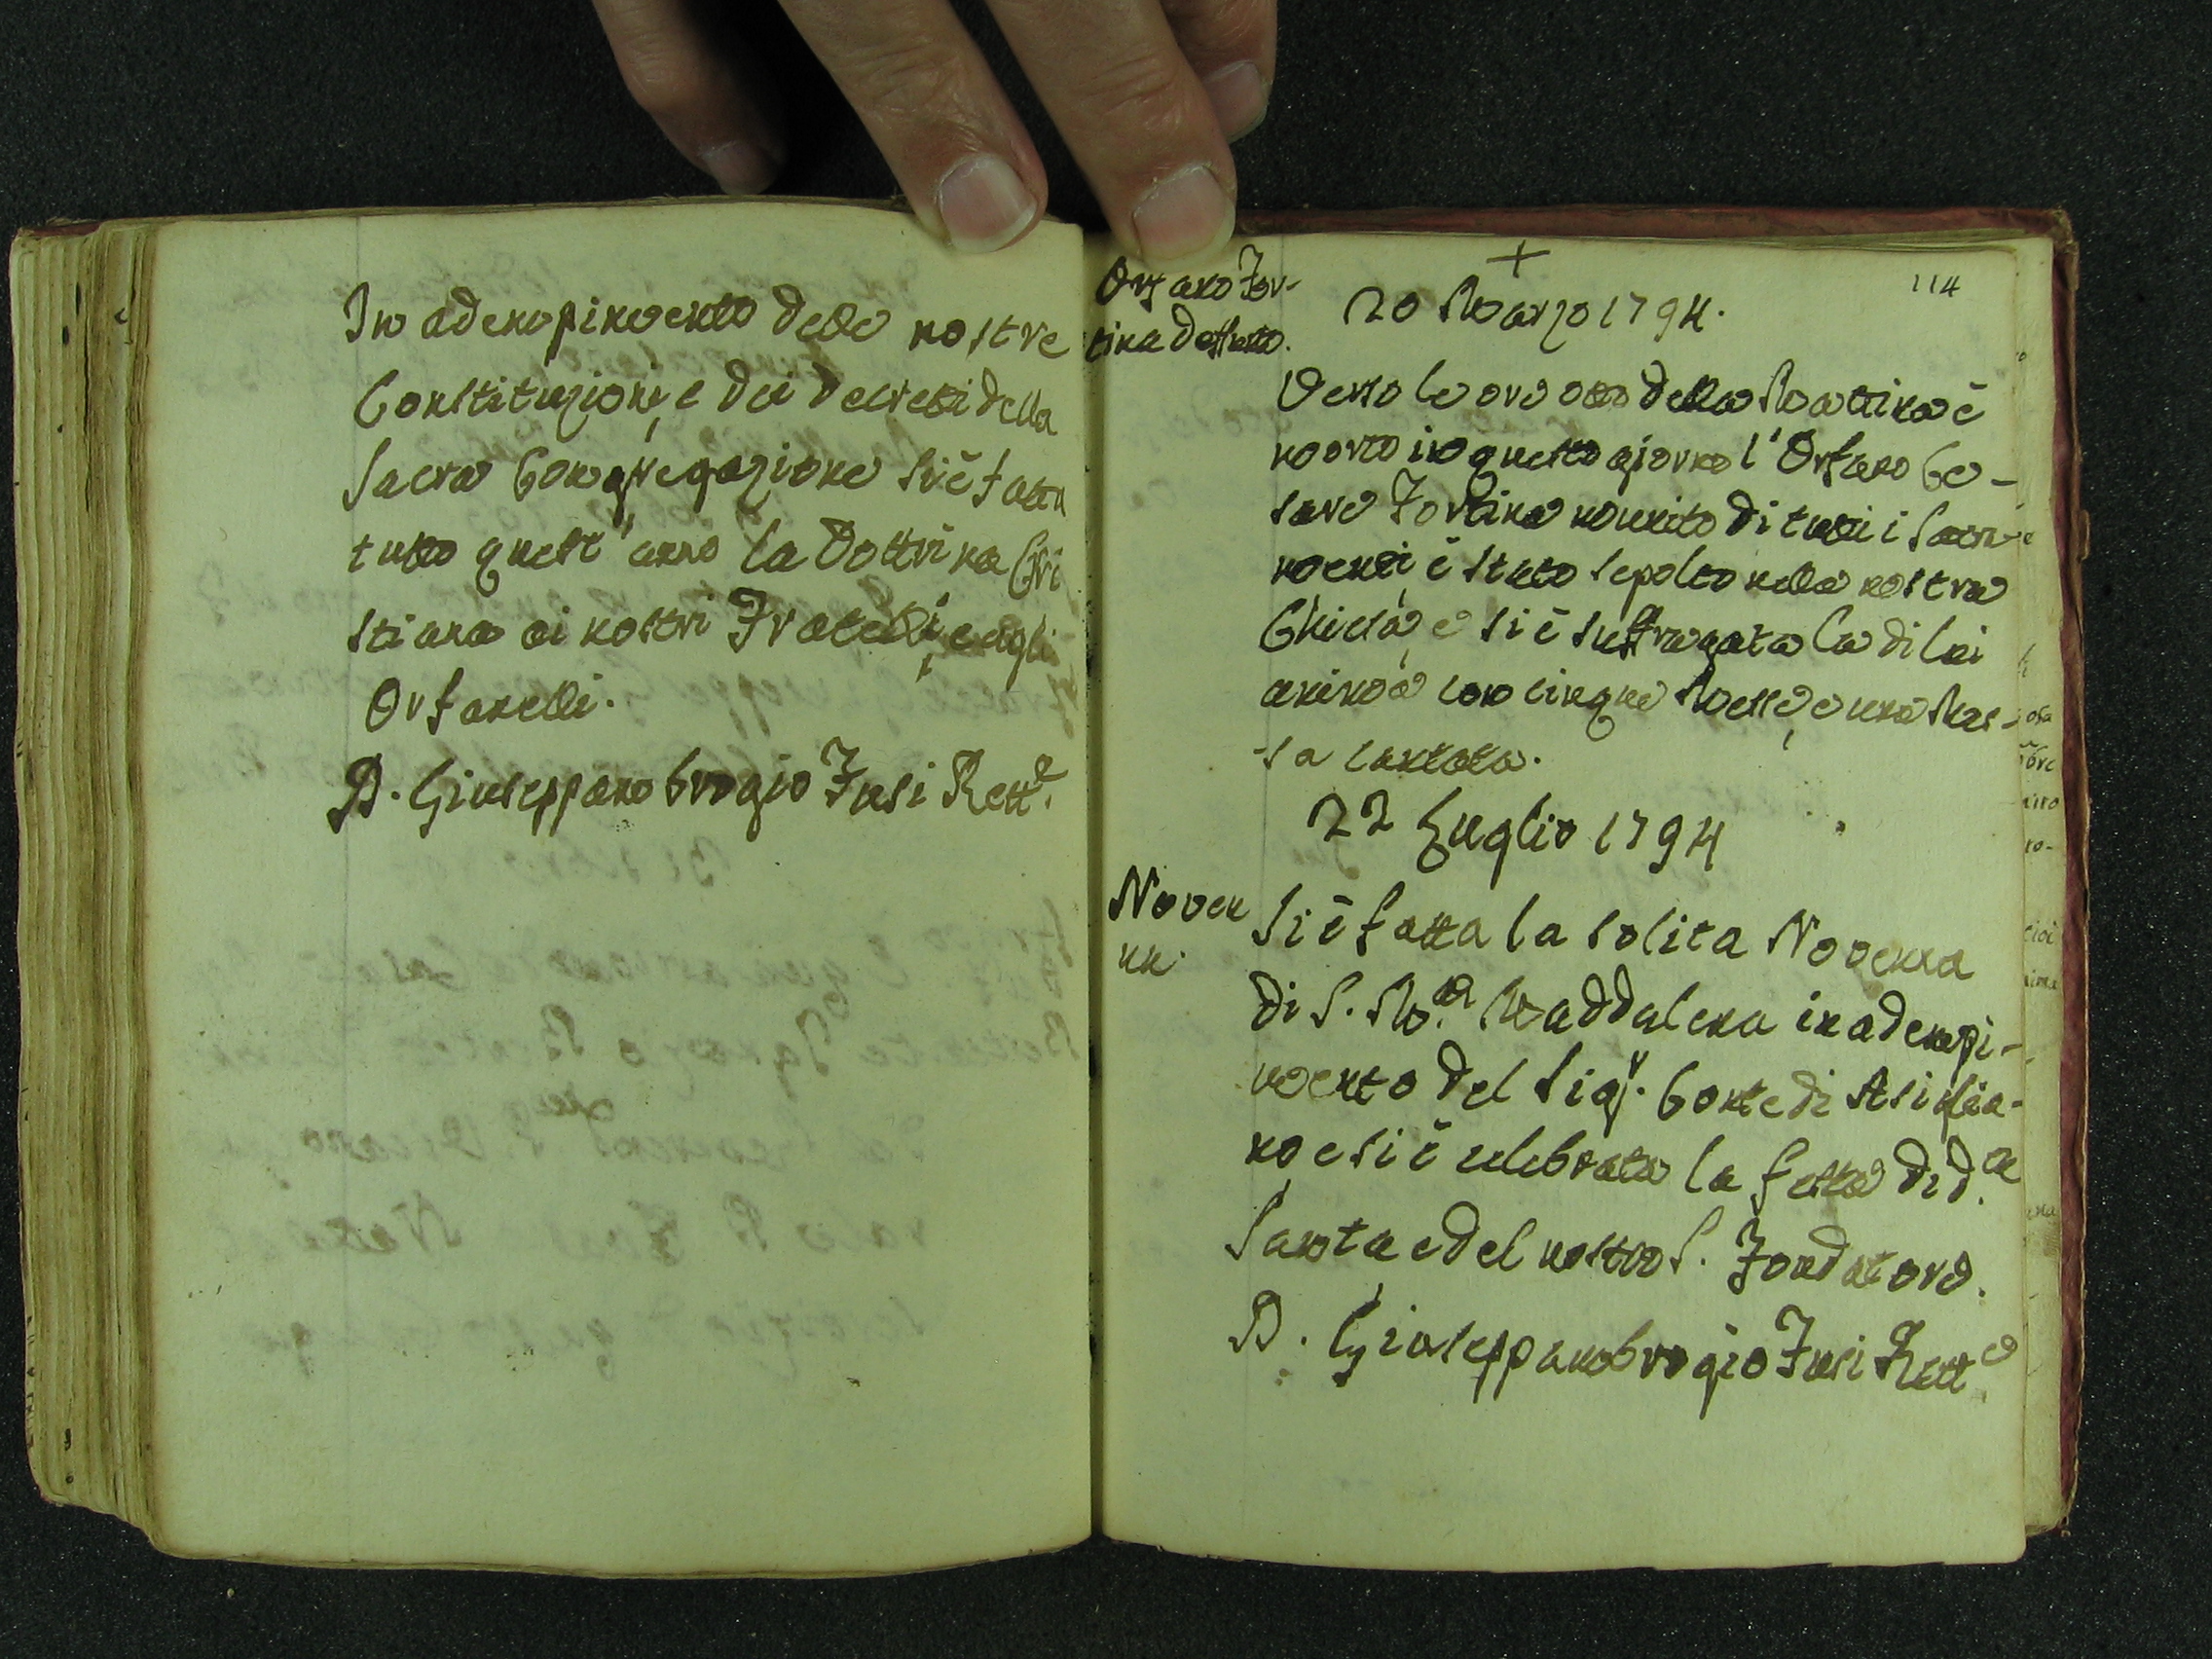 In adempimento delle nostre
Constituzioni, e dei decreti della
Sacra Congregazione si è fatta
tutto quest'anno la Dottrina Cri
stiana ai nostri Fratelli, e agli
Orfanelli.
D. Giuseppambrogio Fusi Rett.e
114
+
20 Marzo 1794.
Orfano For-
tina defunto.
Verso le ore otto della Mattina è
morto in questo giorno l'Orfano Ce-
sare Fortina munito di tutti i Sacra-
menti, è stato sepolto nella nostra
Chiesa, e si è suffragata la di lui
anima con cinque Messe, e una Mes-
sa cantata.
22 Luglio 1794
Noven
na.
Si è fatta la solita Novenna
di S. M.a Maddalena in adempi-
mento del Sig.r Conte di Asiglia-
no e si è celebrata la festa di d.a
Santa e del nostro S. Fondatore.
D. Giuseppambrogio Fusi Rett.e